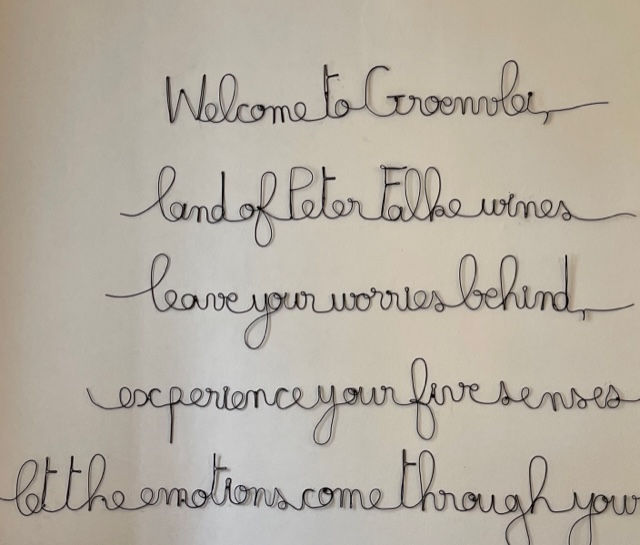 Welcome to Groenvlei,
land of Peter Falke wines
leave your worries behind,
experience your five senses
let the emotions come through your